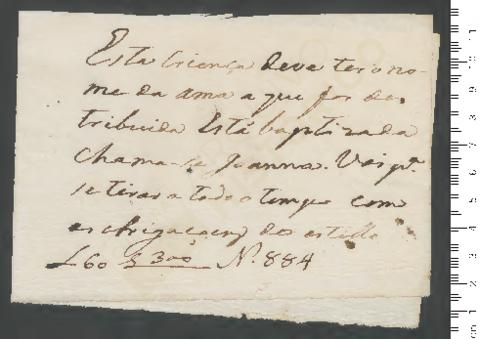 Esta Criença deve ter o no-
me da ama a que for des
tribuida Está baptizada
chama-se Joanna. Vai pª.
se tirar a todo o tempo com
as obrigacoens do estillo
L 60 f 300 N. 884